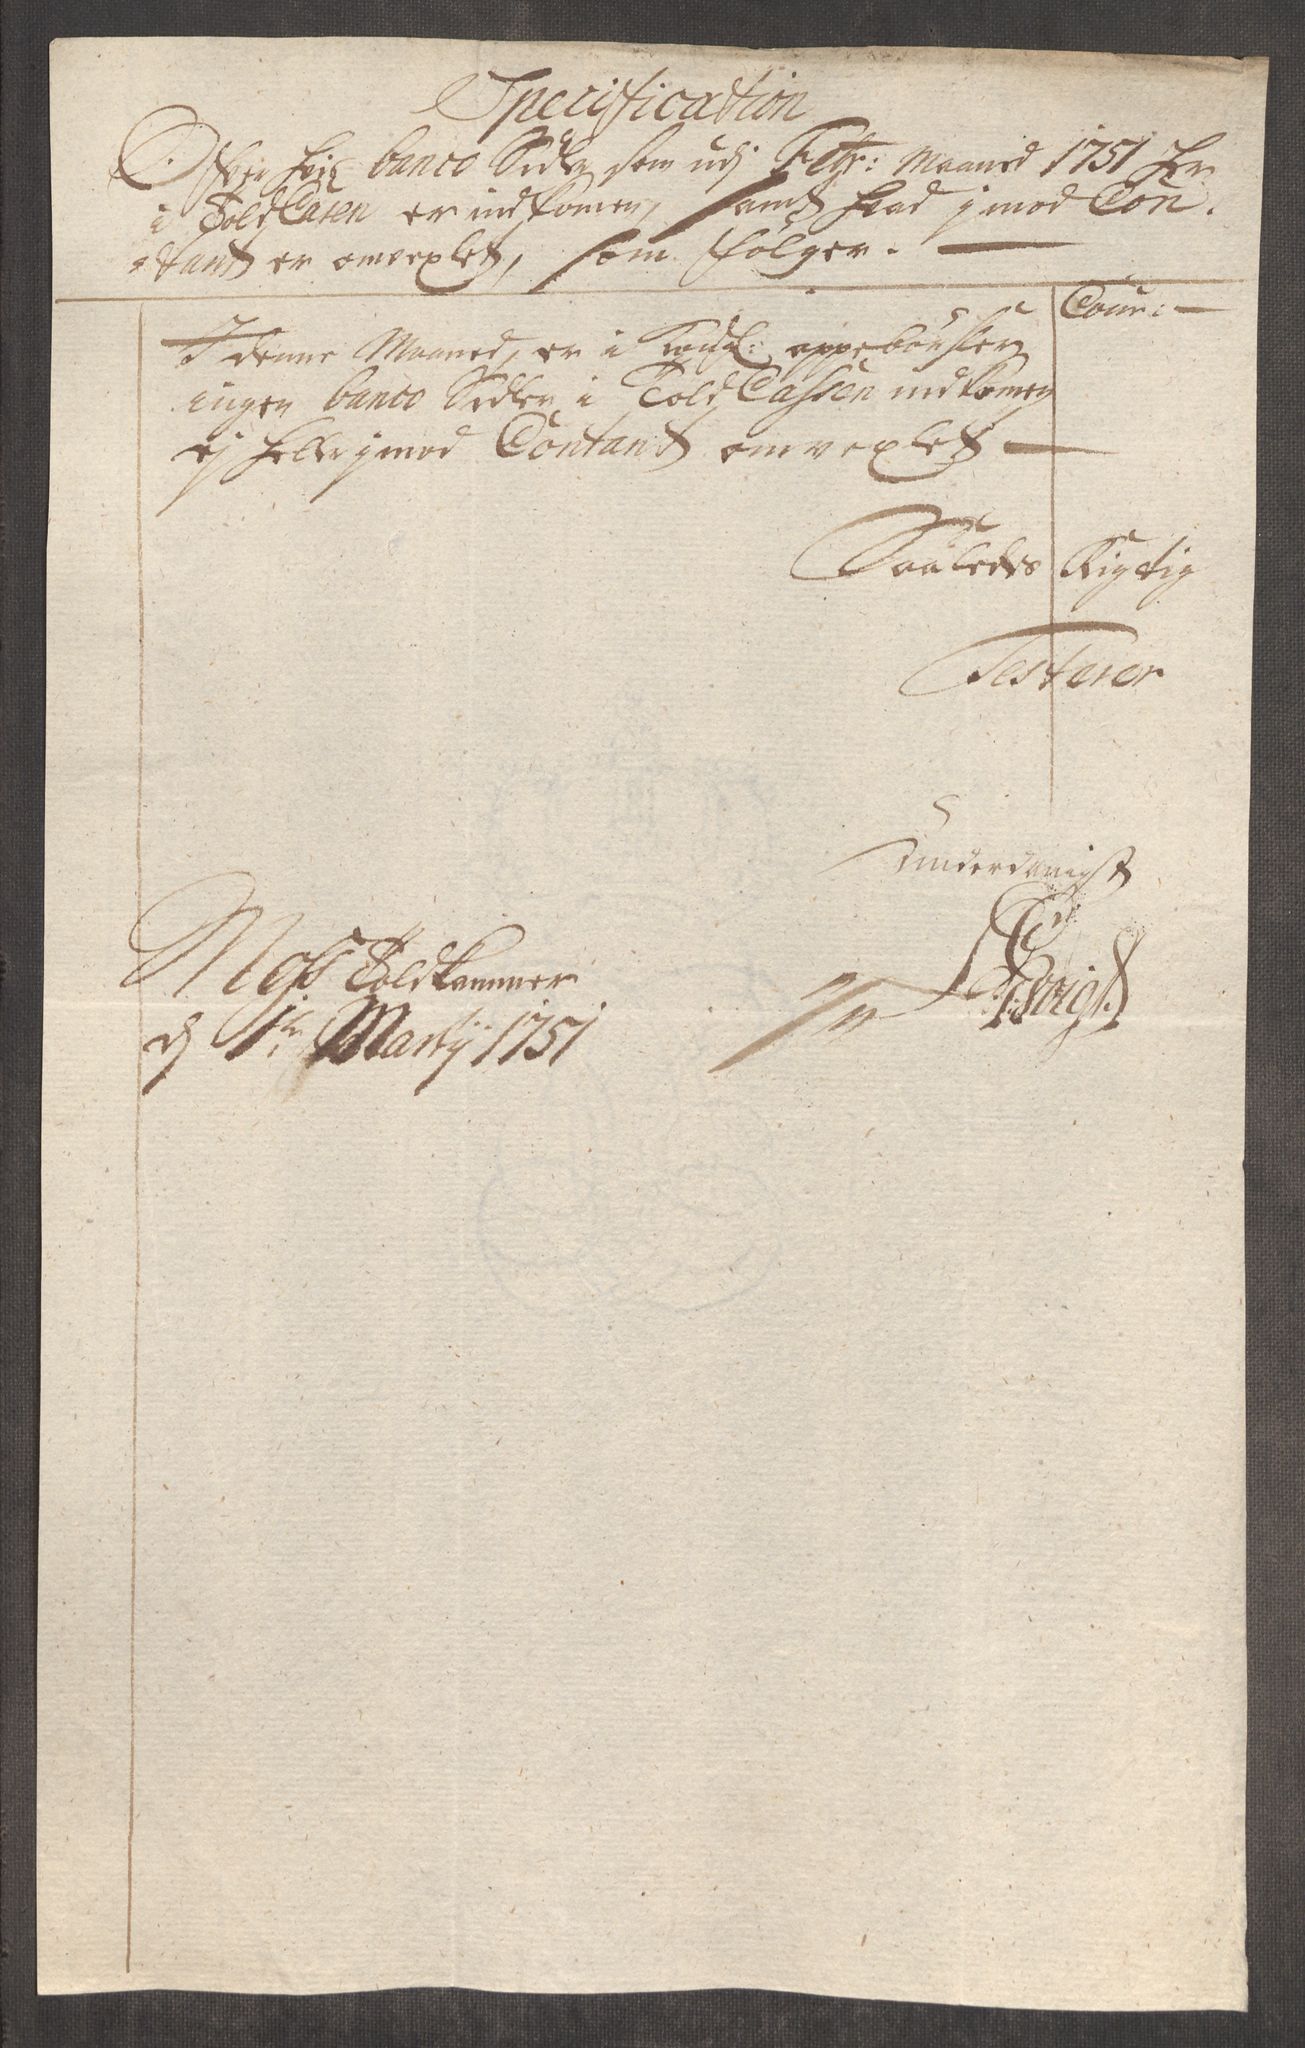 Specification
Over hvis banco Sedler som udj Febr: Maaned 1751 her
i Told Casen er indkomen, samt hvad jmod Con-
-tant er omvexlet, som følger.
Cour:
I denne Maaned, er i Told: oppebørsler
ingen banco Sedler i Told Cassen indkomen
ej heller jmod Contant omvexlet
Saaledes Rigtig
Testerer
Underdanigst
Moss Toldkammer
d 1te Martij 1751
Voigt